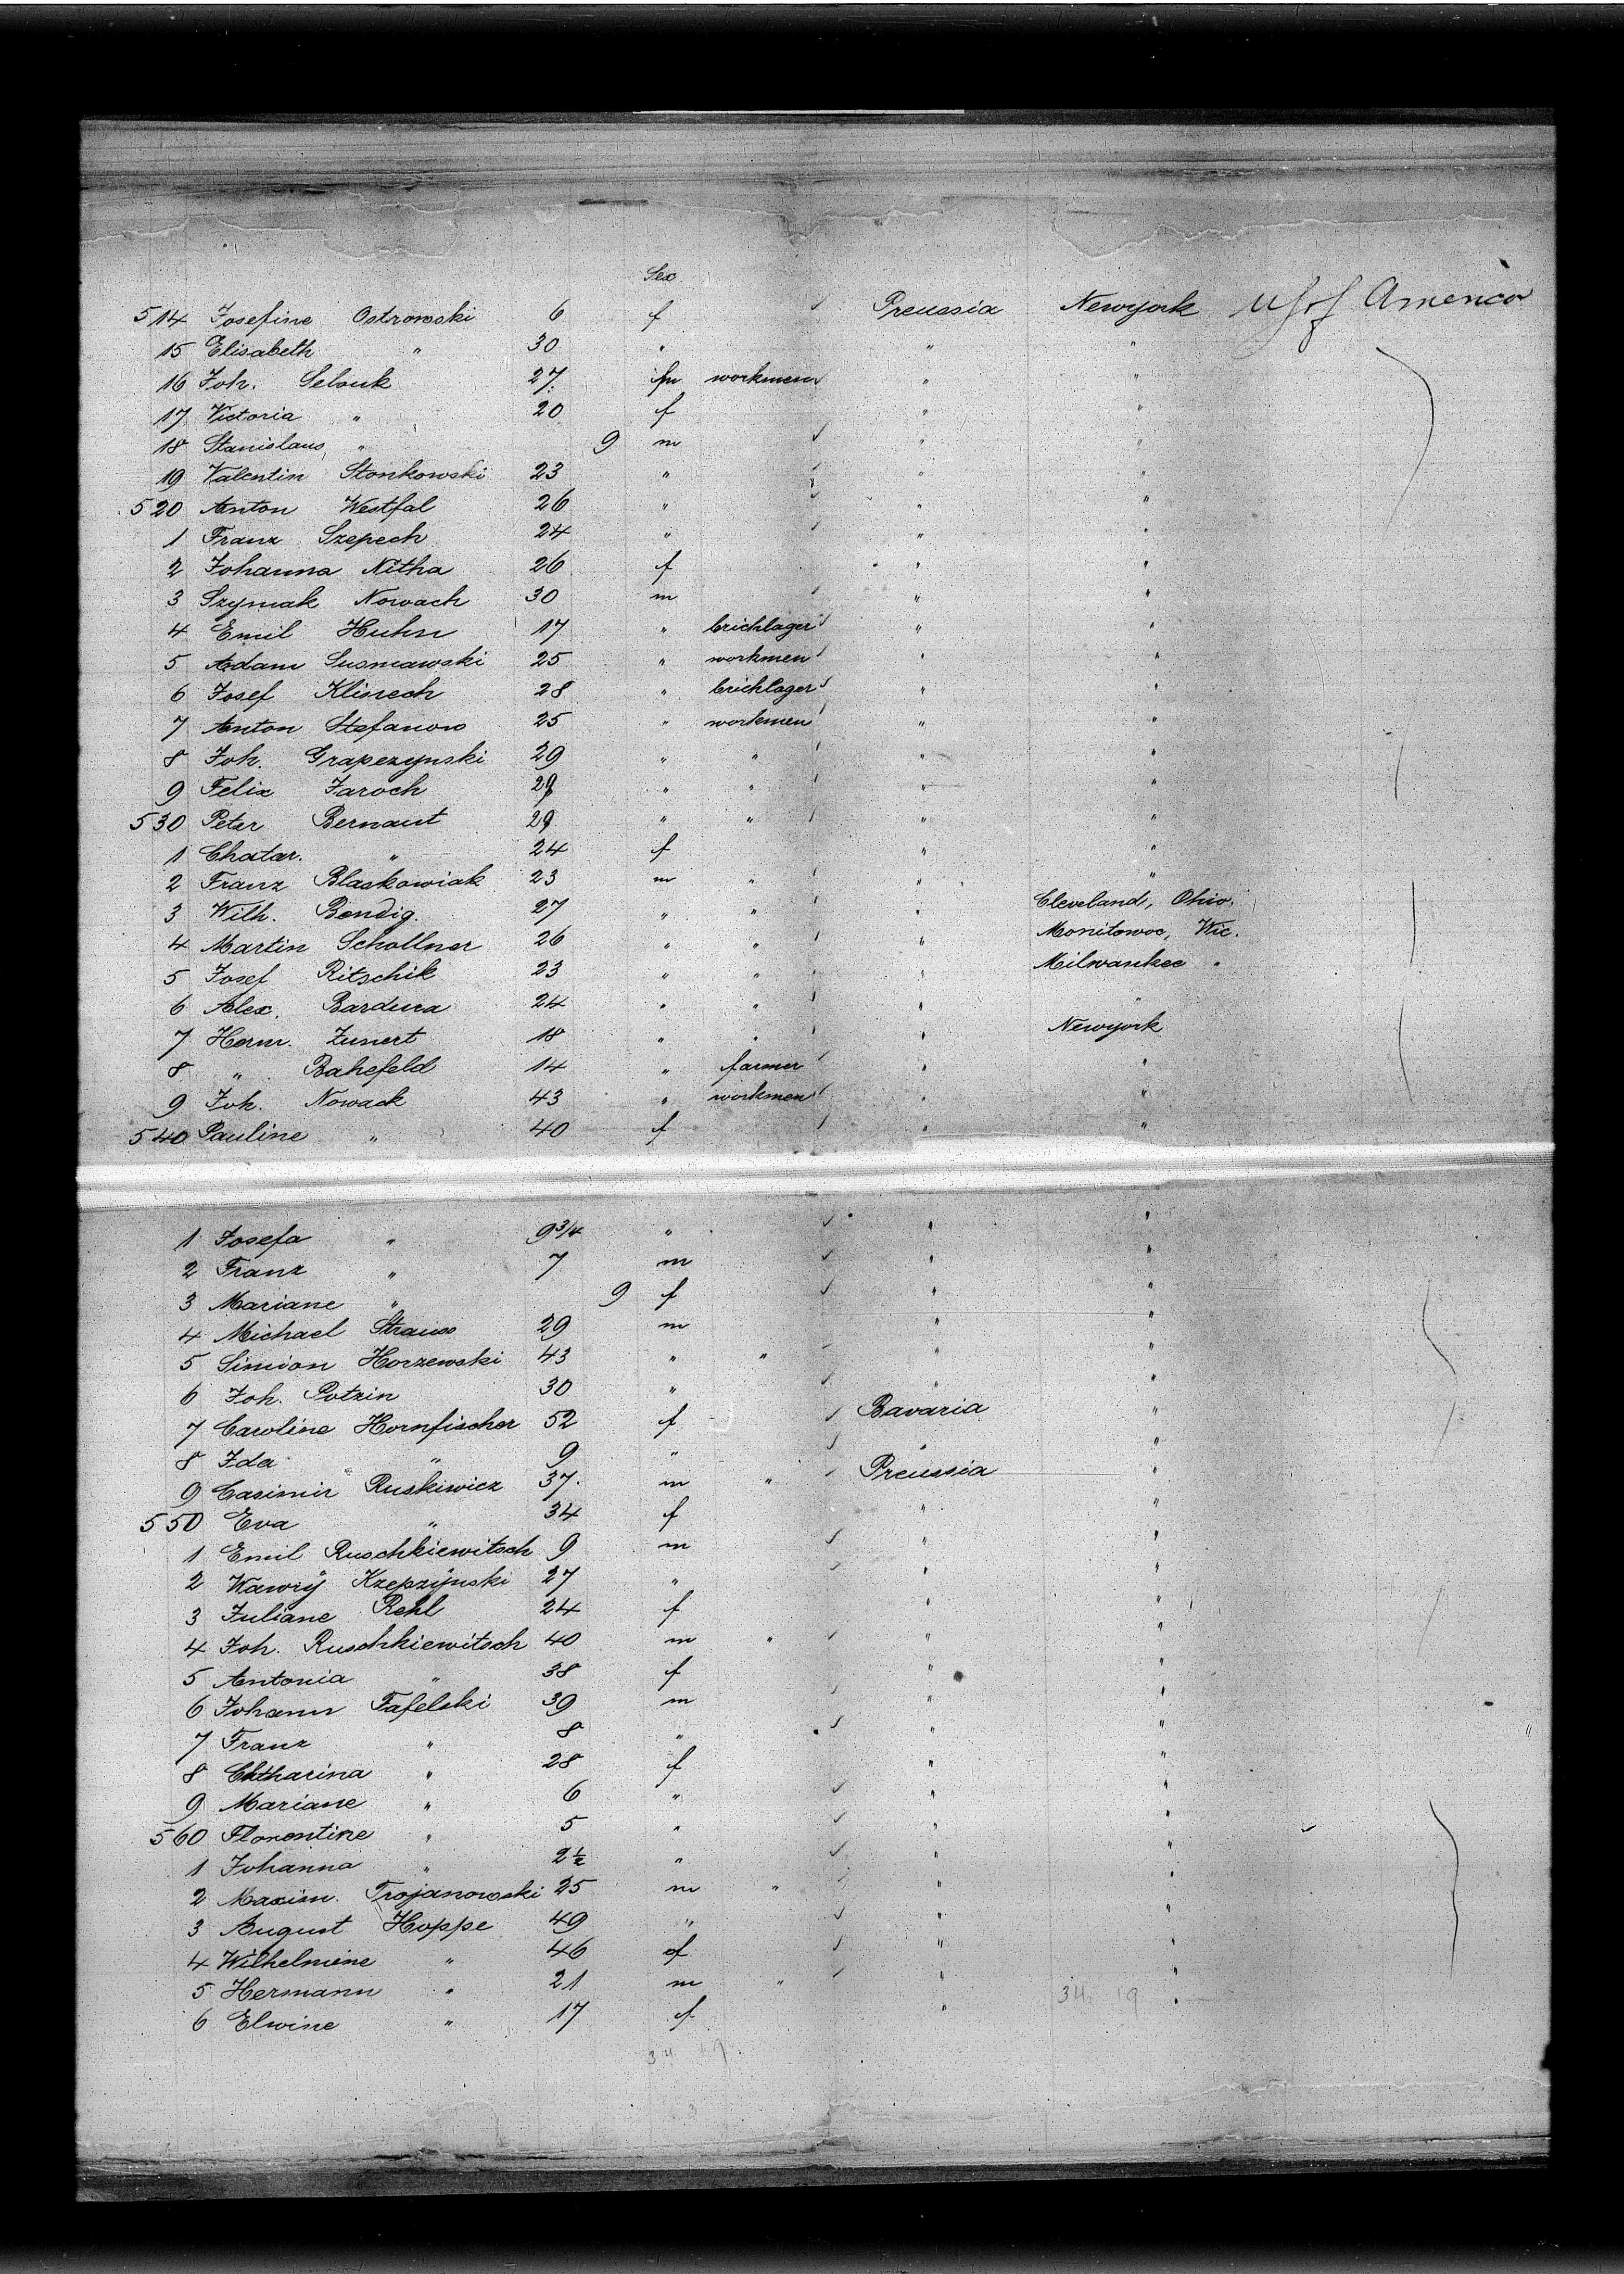 Sex
514 Josefine Ostrowski 6 f Preussia Newyork U S of America
15 Elisabeth " 30 " " "
16 Joh. Selouk 27 m workmen " "
17 Victoria " 20 f " "
18 Stanislaus " 9 m " "
19 Valentin Stonkowski 23 " " "
520 Anton Westfal 26 " " "
1 Franz Szepech 24 " " "
2 Johanna Nitha 26 f " "
3 Szymak Nowach 30 m " "
4 Emil Huhn 17 " brichlager " "
5 Adam Susmawski 25 " workmen " "
6 Josef Klinech 28 " brichlager " "
7 Anton Stefanow 25 " workmen " "
8 Joh. Grapezynski 29 " " " "
9 Felix Jaroch 29 " " " "
530 Peter Bernaut 29 " " " "
1 Chatar. " 24 f " "
2 Franz Blaskowiak 23 m " " "
3 Wilh. Bendig. 27 " " " Cleveland, Ohio.
4 Martin Schollner 26 " " " Monitowoc, Wic.
5 Josef Ritschik 23 " " " Milwaukee "
6 Alex. Bardura 24 " " " "
7 Herm. Zunert 18 " " " Newyork
8 " Bahefeld 14 " farmer " "
9 Joh. Nowack 43 " workmen " "
540 Pauline " 40 f " "
1 Josefa " 9 3/4 " " "
2 Franz " 7 m " "
3 Mariane " 9 f " "
4 Michael Strauss 29 m " "
5 Simion Horzewski 43 " " " "
6 Joh. Potzin 30 " " "
7 Caroline Hornfischer 52 f Bavaria "
8 Ida " 9 " " "
9 Casimir Ruskiwicz 37. m " Preussia "
550 Eva " 34 f " "
1 Emil Ruschkiewitsch 9 m " "
2 Wawrÿ Kzepzÿnski 27 " " "
3 Juliane Rehl 24 f " "
4 Joh. Ruschkiewitsch 40 m " " "
5 Antonia " 38 f " "
6 Johann Tafelski 39 m " "
7 Franz " 8 " " "
8 Chtharina " 28 f " "
9 Mariane " 6 " " "
560 Florentine " 5 " " "
1 Johanna " 2 1/2 " " "
2 Maxim. Trojanowski 25 m " " "
3 August Hoppe 49 " " "
4 Wilhelmine " 46 f " "
5 Hermann " 21 m " " "
6 Elwine " 17 f " 34 19 "
34 19
3